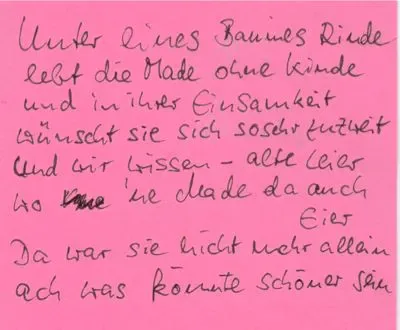 Unter eines Baumes Rinde
lebt die Made ohne Kinde
und in ihrer Einsamkeit
wünscht sie sich so sehr zuzweit
Und wir wissen – alte Leier
wo 'ne Made da auch
Eier
Da war sie nicht mehr allein
ach was könnte schöner sein